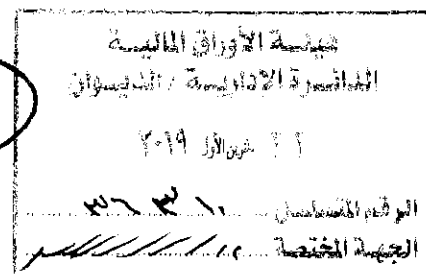 هيئة الأوراق المالية
الدائرة الإدارية / الديوان
تشرين الأول ٢٠١٩
الرقم المتسلسل ٣٦٣١٠
الجهة المختصة